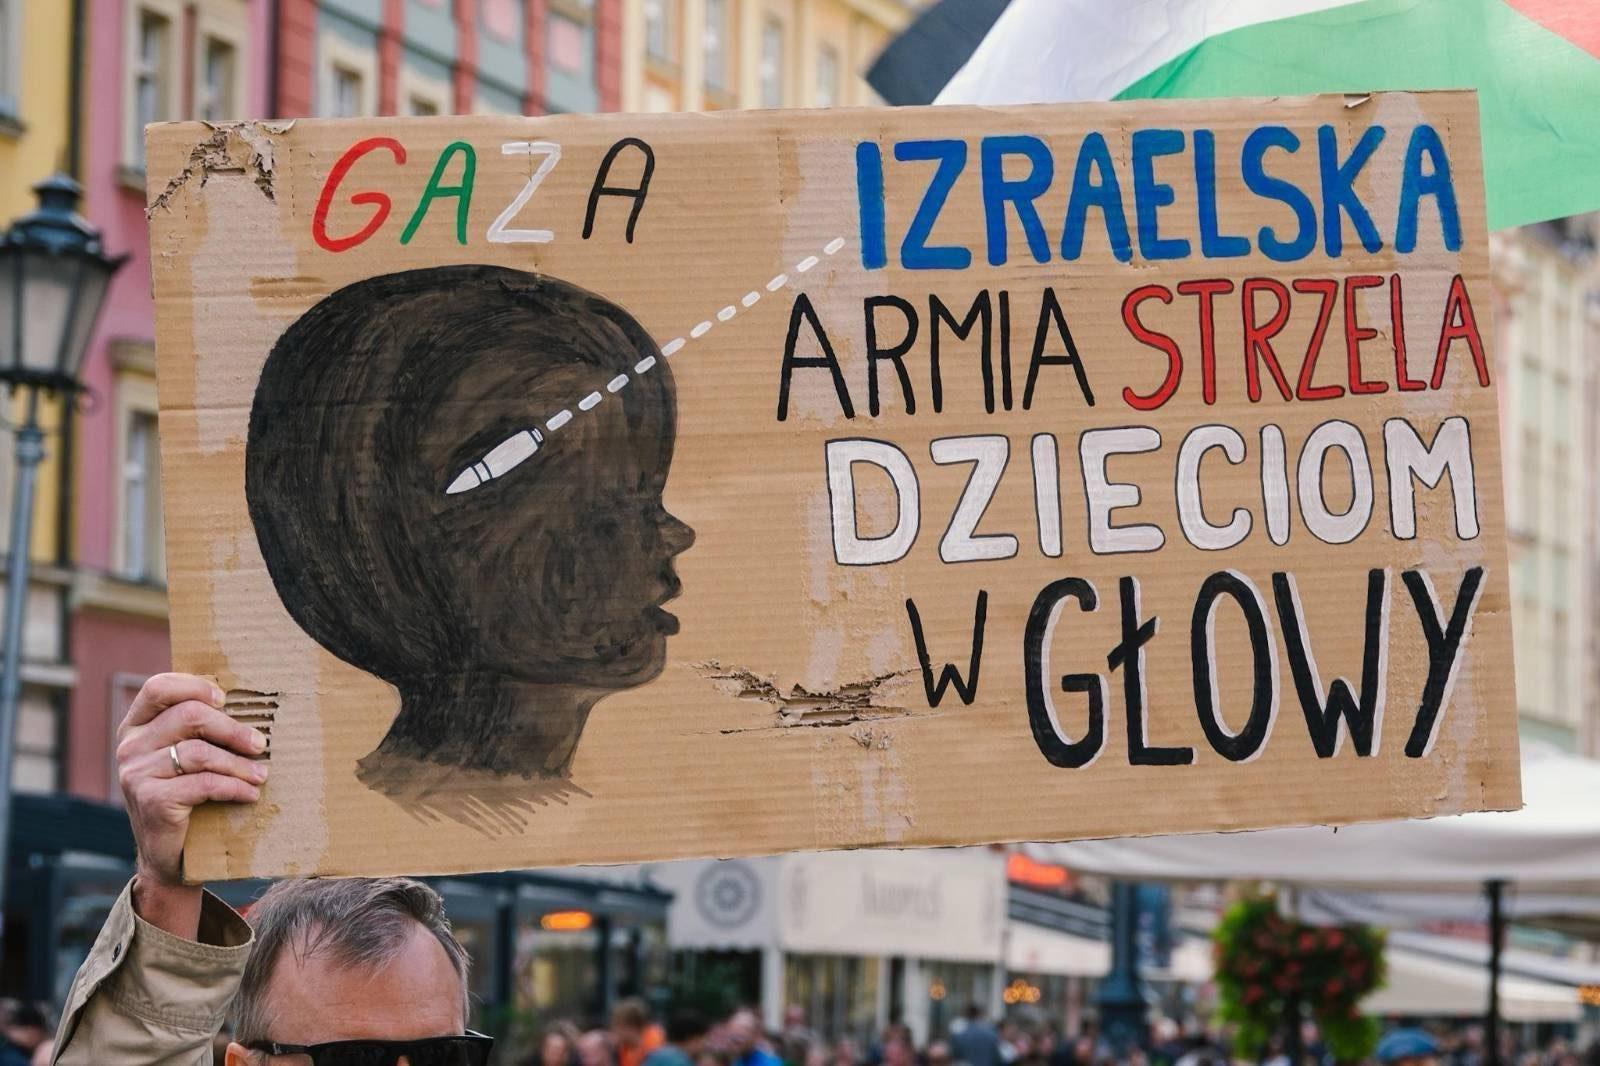 GAZA
IZRAELSKA
ARMIA STRZELA
DZIECIOM
W GŁOWY